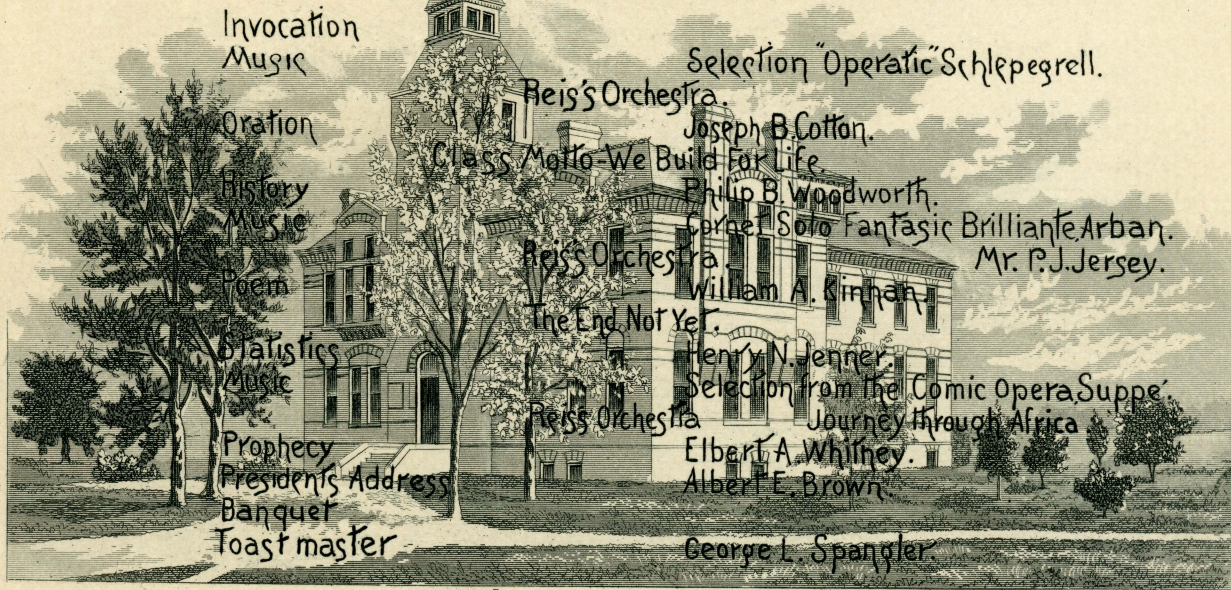 Invocation
Music Selection "Operatic" Schlepegrell.
Reis's Orchestra.
Oration Joseph B. Cotton.
Class Motto-We Build For Life.
History Philip B. Woodworth.
Music Cornet Solo Fantasic Brilliante, Arban.
Reis's Orchestra Mr. P. J. Jersey.
Poem William A. Kinnan.
The End Not Yet.
Statistics Henry N. Jenner.
Music Selection from the Comic Opera, Suppe'.
Reis's Orchestra Journey through Africa
Prophecy Elbert A. Whitney.
Presidents Address Albert E. Brown.
Banquet
Toast master George L. Spangler.